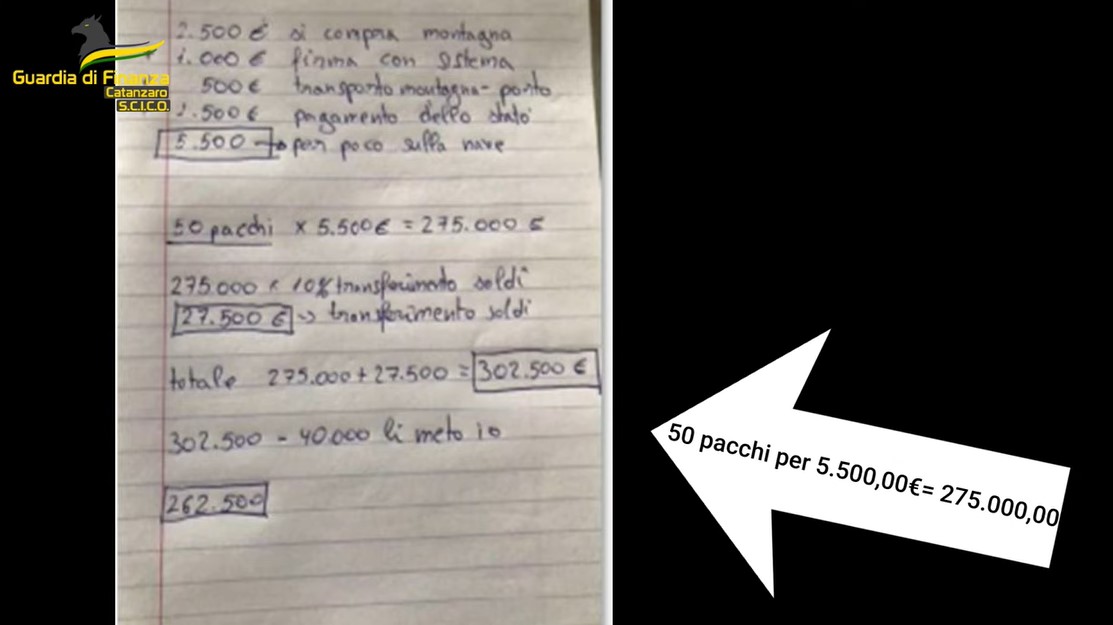 Guardia di Finanza
Catanzaro
S.C.I.C.O.
2.500 € si compra montagna
1.000 € firma con sistema
500 € transporto montagna - porto
1.500 € pagamento dello stato
5.500 → per poco sulla nave
50 pacchi x 5.500 € = 275.000 €
275.000 x 10% transferimento soldi
27.500 € → transferimento soldi
totale 275.000 + 27.500 = 302.500 €
302.500 - 40.000 li meto io
262.500
50 pacchi per 5.500,00€= 275.000,00